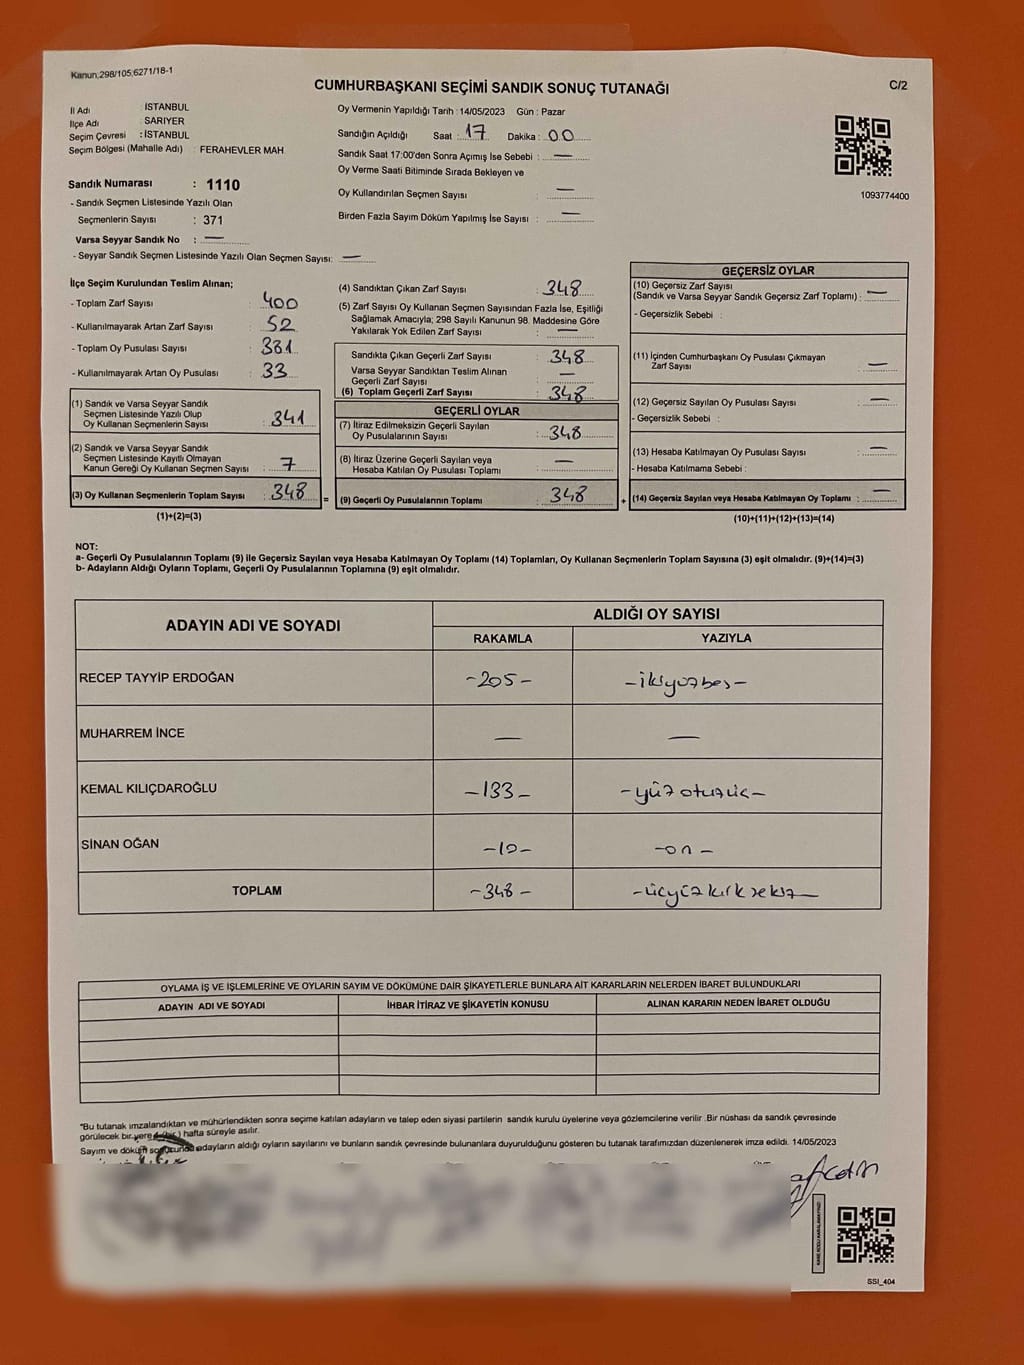 Kanun:298/105;6271/18-1
CUMHURBAŞKANI SEÇİMİ SANDIK SONUÇ TUTANAĞI
C/2
İl Adı : İSTANBUL
İlçe Adı : SARIYER
Seçim Çevresi : İSTANBUL
Seçim Bölgesi (Mahalle Adı) : FERAHEVLER MAH.
Oy Vermenin Yapıldığı Tarih : 14/05/2023 Gün : Pazar
Sandığın Açıldığı Saat : 17 Dakika : 00
Sandık Saat 17:00'den Sonra Açımış İse Sebebi : —
Oy Verme Saati Bitiminde Sırada Bekleyen ve
Oy Kullandırılan Seçmen Sayısı : —
Birden Fazla Sayım Döküm Yapılmış İse Sayısı : —
1093774400
Sandık Numarası : 1110
- Sandık Seçmen Listesinde Yazılı Olan
Seçmenlerin Sayısı : 371
Varsa Seyyar Sandık No : —
- Seyyar Sandık Seçmen Listesinde Yazılı Olan Seçmen Sayısı: —
İlçe Seçim Kurulundan Teslim Alınan;
- Toplam Zarf Sayısı : 400
- Kullanılmayarak Artan Zarf Sayısı : 52
- Toplam Oy Pusulası Sayısı : 381
- Kullanılmayarak Artan Oy Pusulası : 33
(1) Sandık ve Varsa Seyyar Sandık
Seçmen Listesinde Yazılı Olup
Oy Kullanan Seçmenlerin Sayısı : 341
(2) Sandık ve Varsa Seyyar Sandık
Seçmen Listesinde Kayıtlı Olmayan
Kanun Gereği Oy Kullanan Seçmen Sayısı : 7
(3) Oy Kullanan Seçmenlerin Toplam Sayısı : 348
(1)+(2)=(3)
(4) Sandıktan Çıkan Zarf Sayısı : 348
(5) Zarf Sayısı Oy Kullanan Seçmen Sayısından Fazla İse, Eşitliği
Sağlamak Amacıyla; 298 Sayılı Kanunun 98. Maddesine Göre
Yakılarak Yok Edilen Zarf Sayısı : —
Sandıkta Çıkan Geçerli Zarf Sayısı : 348
Varsa Seyyar Sandıktan Teslim Alınan
Geçerli Zarf Sayısı : —
(6) Toplam Geçerli Zarf Sayısı : 348
GEÇERLİ OYLAR
(7) İtiraz Edilmeksizin Geçerli Sayılan
Oy Pusulalarının Sayısı : 348
(8) İtiraz Üzerine Geçerli Sayılan veya
Hesaba Katılan Oy Pusulası Toplamı : —
= (9) Geçerli Oy Pusulalarının Toplamı : 348
GEÇERSİZ OYLAR
(10) Geçersiz Zarf Sayısı
(Sandık ve Varsa Seyyar Sandık Geçersiz Zarf Toplamı) : —
- Geçersizlik Sebebi :
(11) İçinden Cumhurbaşkanı Oy Pusulası Çıkmayan
Zarf Sayısı : —
(12) Geçersiz Sayılan Oy Pusulası Sayısı : —
- Geçersizlik Sebebi :
(13) Hesaba Katılmayan Oy Pusulası Sayısı : —
- Hesaba Katılmama Sebebi :
+ (14) Geçersiz Sayılan veya Hesaba Katılmayan Oy Toplamı : —
(10)+(11)+(12)+(13)=(14)
NOT:
a- Geçerli Oy Pusulalarının Toplamı (9) ile Geçersiz Sayılan veya Hesaba Katılmayan Oy Toplamı (14) Toplamları, Oy Kullanan Seçmenlerin Toplam Sayısına (3) eşit olmalıdır. (9)+(14)=(3)
b- Adayların Aldığı Oyların Toplamı, Geçerli Oy Pusulalarının Toplamına (9) eşit olmalıdır.
ADAYIN ADI VE SOYADI
ALDIĞI OY SAYISI
RAKAMLA YAZIYLA
RECEP TAYYİP ERDOĞAN -205- -ikiyüzbeş-
MUHARREM İNCE — —
KEMAL KILIÇDAROĞLU -133- -yüzotuzüç-
SİNAN OĞAN -10- -on-
TOPLAM -348- -üçyüzkırksekiz-
OYLAMA İŞ VE İŞLEMLERİNE VE OYLARIN SAYIM VE DÖKÜMÜNE DAİR ŞİKAYETLERLE BUNLARA AİT KARARLARIN NELERDEN İBARET BULUNDUKLARI
ADAYIN ADI VE SOYADI İHBAR İTİRAZ VE ŞİKAYETİN KONUSU ALINAN KARARIN NEDEN İBARET OLDUĞU
"Bu tutanak imzalandıktan ve mühürlendikten sonra seçime katılan adayların ve talep eden siyasi partilerin sandık kurulu üyelerine veya gözlemcilerine verilir .Bir nüshası da sandık çevresinde
görülecek bir yere hafta süreyle asılır.
Sayım ve döküm adayların aldığı oyların sayılarını ve bunların sandık çevresinde bulunanlara duyurulduğunu gösteren bu tutanak tarafımızdan düzenlenerek imza edildi. 14/05/2023
KARE KODU KARALAMAYINIZ!
SSI_404